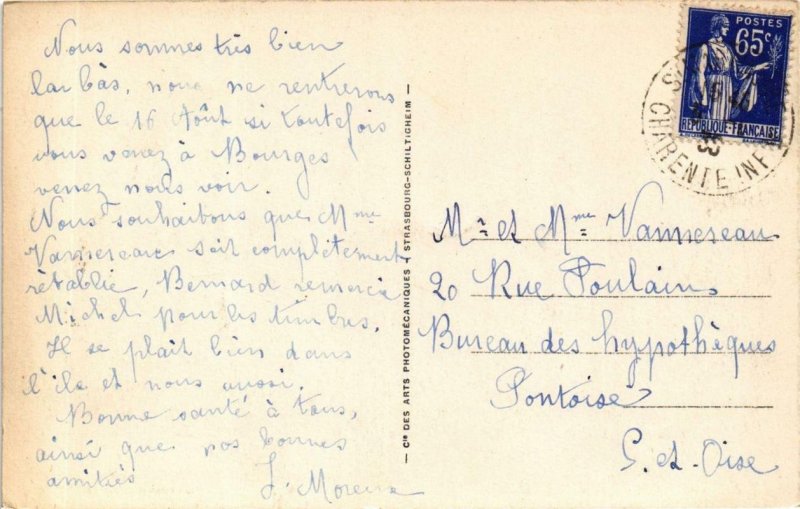 Nous sommes très bien
là bas, nous ne rentrerons
que le 16 Août si toutefois
vous venez à Bourges
venez nous voir.
Nous souhaitons que Mme
Vannereau soit complètement
rétablie, Bernard remercie
Michel pour les timbres.
Il se plait bien dans
l'île et nous aussi.
Bonne santé à tous,
ainsi que nos bonnes
amitiés
— Cie DES ARTS PHOTOMÉCANIQUES - STRASBOURG-SCHILTIGHEIM —
POSTES
65c
RÉPUBLIQUE-FRANÇAISE
CHARENTE INFRE
Mr et Mme Vannereau
20 Rue Poulain
Bureau des hypothèques
Pontoise
S. et. Oise